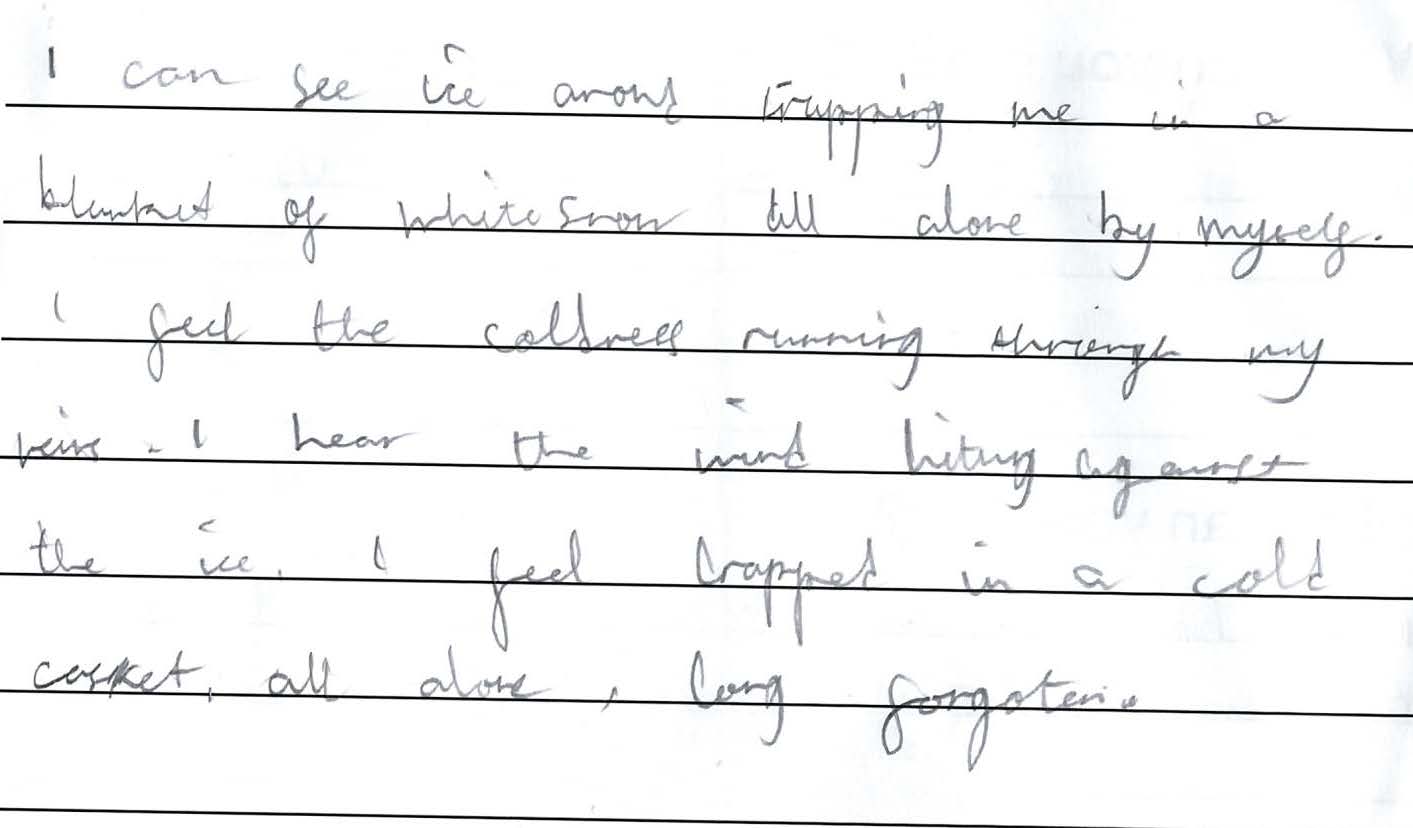 I can see ice arond trapping me in a
blanket of white snow all alone by myself.
I feel the coldness running through my
veins. I hear the wind hiting against
the ice. I feel trapped in a cold
casket, all alone, long forgoten.